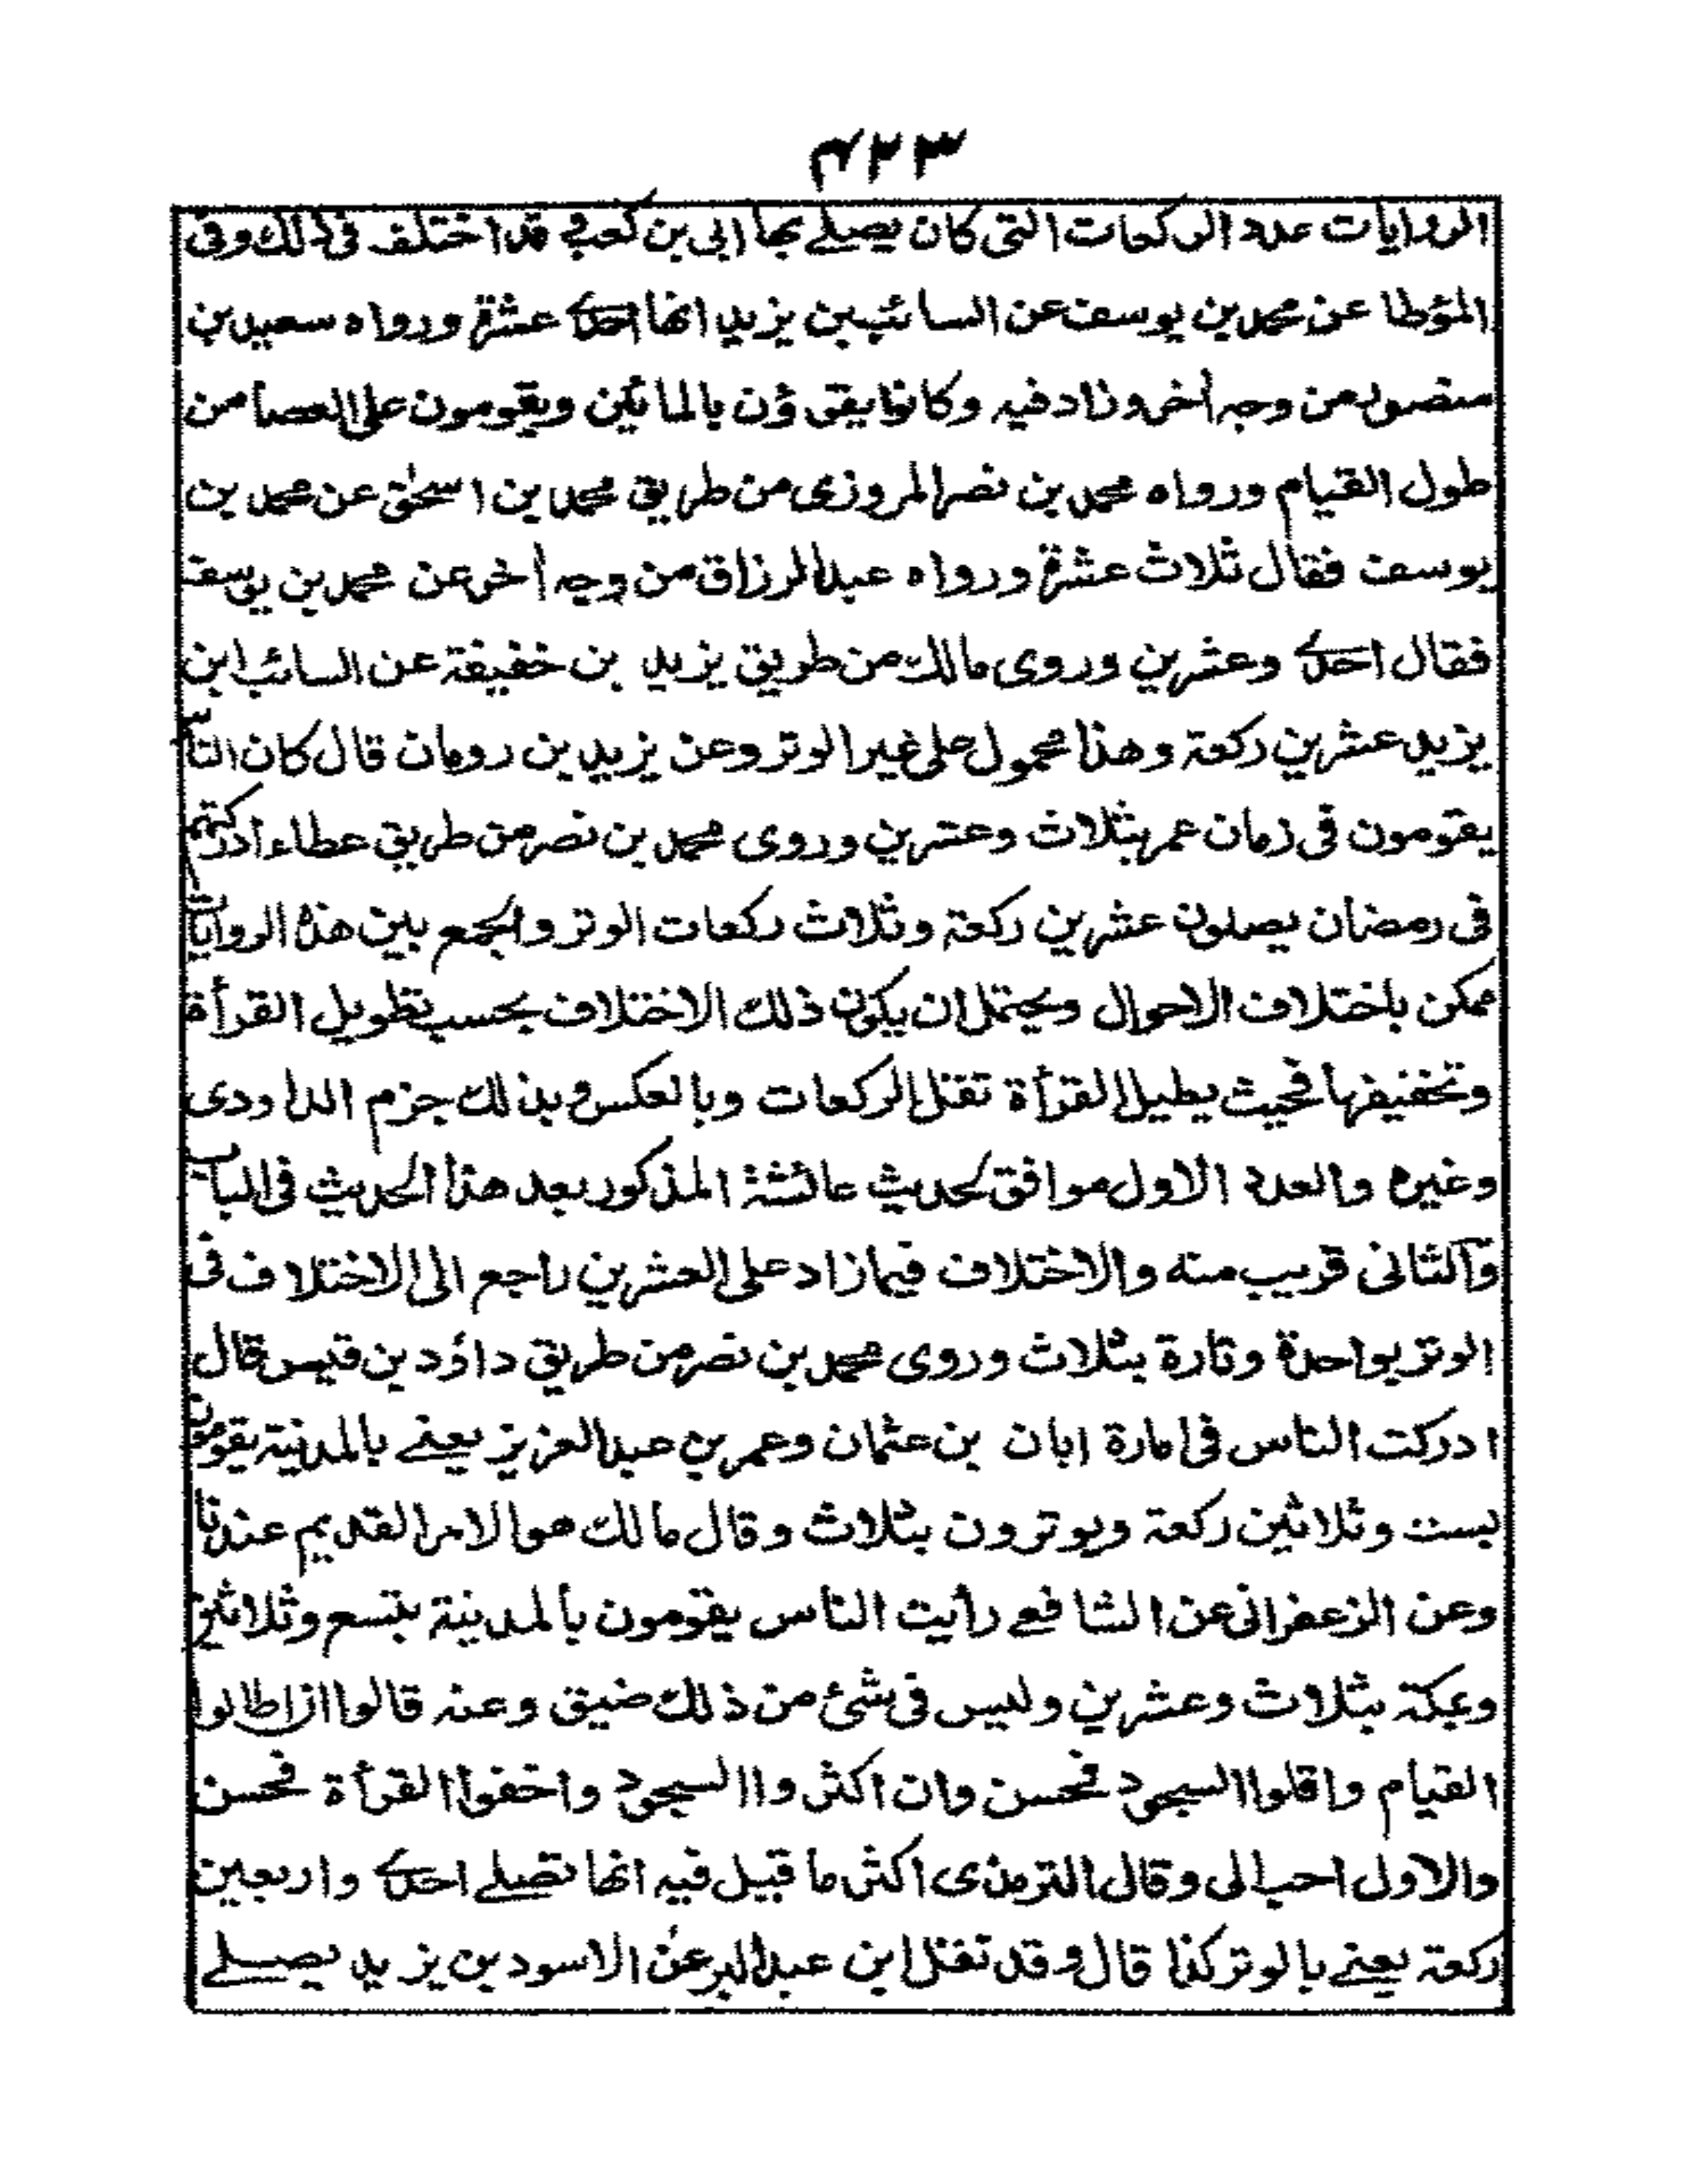 ۴۲۳
الروايات عدد الركعات التى كان يصلے بها ابى بن كعب و قد اختلف فى ذلك وفى
المؤطا عن محمد بن يوسف عن السائب بن يزيد انها احدى عشرة ورواه سعيد بن
منصور من وجه أخر وزاد فيه وكانوا يقرؤن بالمائين ويقومون على العصا من
طول القيام ورواه محمد بن نصر المروزى من طريق محمد بن اسحٰق عن محمد بن
يوسف فقال ثلاث عشرة ورواه عبد الرزاق من وجه أخر عن محمد بن يوسف
فقال احدى وعشرين وروى مالك من طريق يزيد بن خفيفة عن السائب ابن
يزيد عشرين ركعة وهذا محمول على غير الوتر وعن يزيد بن رومان قال كان الناس
يقومون فى زمان عمر بثلاث وعشرين وروى محمد بن نصر من طريق عطاء ادركتهم
فى رمضان يصلون عشرين ركعة وثلاث ركعات الوتر والجمع بين هذه الروايات
ممكن باختلاف الاحوال ويحتمل ان يكون ذلك الاختلاف بحسب تطويل القرأة
وتخفيفها فحيث يطيل القرأة تقل الركعات وبالعكس و بذلك جزم الداودى
وغيره والعدد الاول موافق لحديث عائشة المذكور بعد هذا الحديث فى الباب
والثانى قريب منه والاختلاف فيما زاد على العشرين راجع الى الاختلاف فى
الوتر بواحدة وتارة بثلاث وروى محمد بن نصر من طريق داؤد بن قيس قال
ادركت الناس فى امارة ابان بن عثمان وعمر بن عبد العزيز يعنے بالمدينة يقومون
بست وثلاثين ركعة ويوترون بثلاث وقال مالك هو الامر القديم عندنا
وعن الزعفرانى عن الشافعے رأيت الناس يقومون بالمدينة بتسع وثلاثين
وبمكة بثلاث وعشرين وليس فى شئ من ذلك ضيق وعنه قالوا ان اطالوا
القيام واقلوا السجود فحسن وان اكثروا السجود واخفوا القرأة فحسن
والاول احب الى وقال الترمذى اكثر ما قيل فيه انها تصلے احدى واربعين
ركعة يعنے بالوتر كذا قال وقد نقل ابن عبد البر عن الاسود بن يزيد يصلے